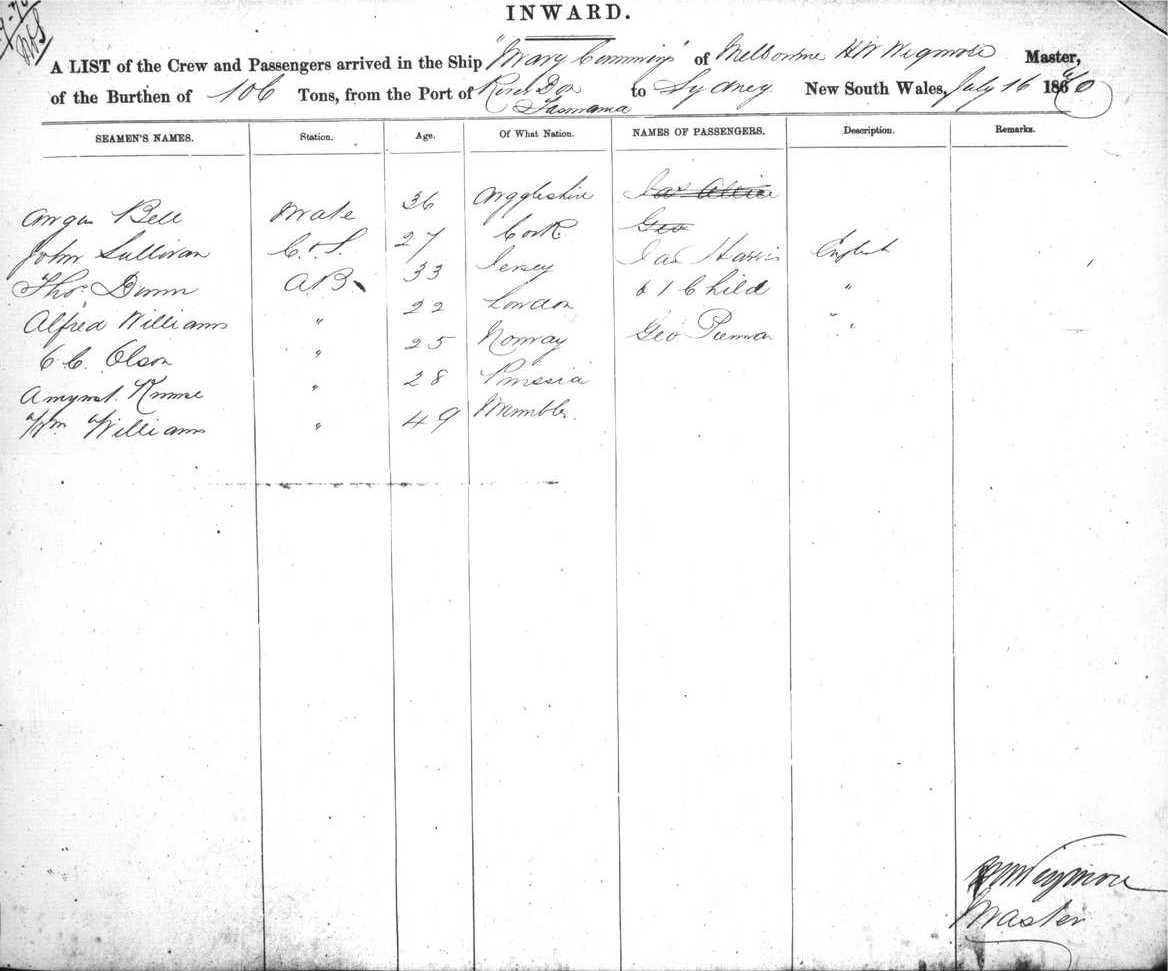 INWARD.
A LIST of the Crew and Passengers arrived in the Ship "Mary Cumming" of Melbourne H W Wigmore Master,
of the Burthen of 106 Tons, from the Port of River Don Tasmania to Sydney New South Wales, July 16 18
SEAMEN'S NAMES. Station. Age. Of What Nation. NAMES OF PASSENGERS. Description. Remarks.
Angus Bell Mate 36 Argyleshire
John Sullivan C & S. 27 Cork Geo
Thos Dunn AB 33 Jersey Jas Harris English
Alfred Williams " 22 London & 1 Child "
C C. Olson " 25 Norway Geo "
" 28 Prussia
Wm Williams " 49 Mumbles
Master